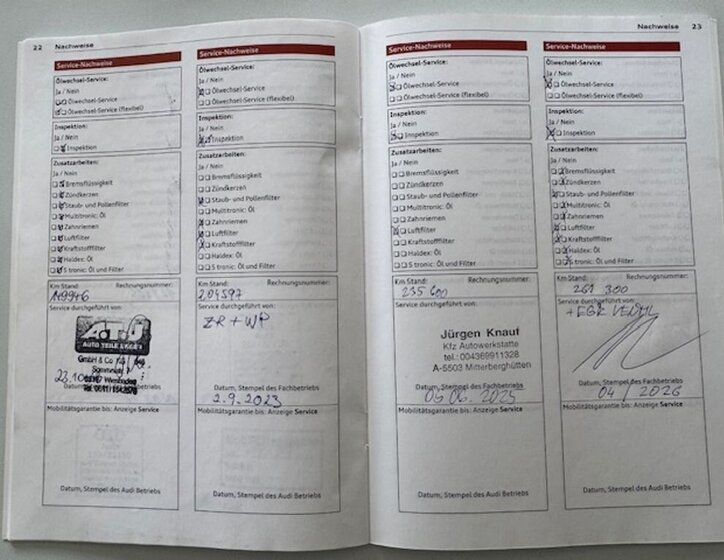 22 Nachweise
Service-Nachweise
Ölwechsel-Service:
Ja / Nein
Ölwechsel-Service
Ölwechsel-Service (flexibel)
Inspektion:
Ja / Nein
Inspektion
Zusatzarbeiten:
Ja / Nein
Bremsflüssigkeit
Zündkerzen
Staub- und Pollenfilter
Multitronic: Öl
Zahnriemen
Luftfilter
Kraftstofffilter
Haldex: Öl
S tronic: Öl und Filter
Km Stand: Rechnungsnummer:
149946
Service durchgeführt von:
A.T.U
AUTO TEILE UNGER
GmbH & Co. KG
Wiesbaden
23.10
Datum, Stempel des Fachbetriebs
Mobilitätsgarantie bis: Anzeige Service
Datum, Stempel des Audi Betriebs
Service-Nachweise
Ölwechsel-Service:
Ja / Nein
Ölwechsel-Service
Ölwechsel-Service (flexibel)
Inspektion:
Ja / Nein
Inspektion
Zusatzarbeiten:
Ja / Nein
Bremsflüssigkeit
Zündkerzen
Staub- und Pollenfilter
Multitronic: Öl
Zahnriemen
Luftfilter
Kraftstofffilter
Haldex: Öl
S tronic: Öl und Filter
Km-Stand: Rechnungsnummer:
204597
Service durchgeführt von:
ZR + WP
Datum, Stempel des Fachbetriebs
2.9.2023
Mobilitätsgarantie bis: Anzeige Service
Datum, Stempel des Audi Betriebs
Nachweise 23
Service-Nachweise
Ölwechsel-Service:
Ja / Nein
Ölwechsel-Service
Ölwechsel-Service (flexibel)
Inspektion:
Ja / Nein
Inspektion
Zusatzarbeiten:
Ja / Nein
Bremsflüssigkeit
Zündkerzen
Staub- und Pollenfilter
Multitronic: Öl
Zahnriemen
Luftfilter
Kraftstofffilter
Haldex: Öl
S tronic: Öl und Filter
Km-Stand: Rechnungsnummer:
235600
Service durchgeführt von:
Jürgen Knauf
Kfz Autowerkstatte
tel.: 004369911328
A-5503 Mitterberghütten
Datum, Stempel des Fachbetriebs
05 06. 2025
Mobilitätsgarantie bis: Anzeige Service
Datum, Stempel des Audi Betriebs
Service-Nachweise
Ölwechsel-Service:
Ja / Nein
Ölwechsel-Service
Ölwechsel-Service (flexibel)
Inspektion:
Ja / Nein
Inspektion
Zusatzarbeiten:
Ja / Nein
Bremsflüssigkeit
Zündkerzen
Staub- und Pollenfilter
Multitronic: Öl
Zahnriemen
Luftfilter
Kraftstofffilter
Haldex: Öl
S tronic: Öl und Filter
Km-Stand: Rechnungsnummer:
261 300
Service durchgeführt von:
+ EGR
Datum, Stempel des Fachbetriebs
04/2026
Mobilitätsgarantie bis: Anzeige Service
Datum, Stempel des Audi Betriebs